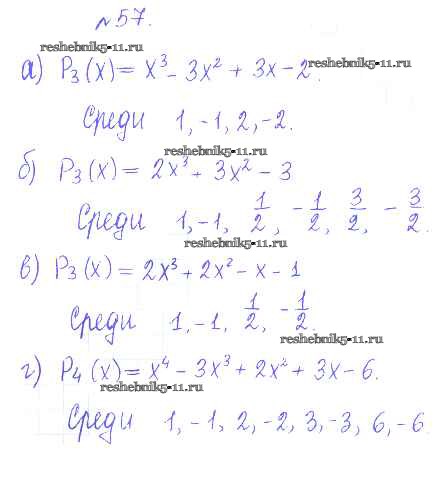 №57.
reshebnik5-11.ru
а) P₃(x) = x³ - 3x² + 3x - 2.
reshebnik5-11.ru
Среди 1, -1, 2, -2.
reshebnik5-11.ru
б) P₃(x) = 2x³ + 3x² - 3
Среди 1, -1, 1/2, -1/2, 3/2, -3/2.
reshebnik5-11.ru
в) P₃(x) = 2x³ + 2x² - x - 1
Среди 1, -1, 1/2, -1/2.
reshebnik5-11.ru
г) P₄(x) = x⁴ - 3x³ + 2x² + 3x - 6.
reshebnik5-11.ru
Среди 1, -1, 2, -2, 3, -3, 6, -6.